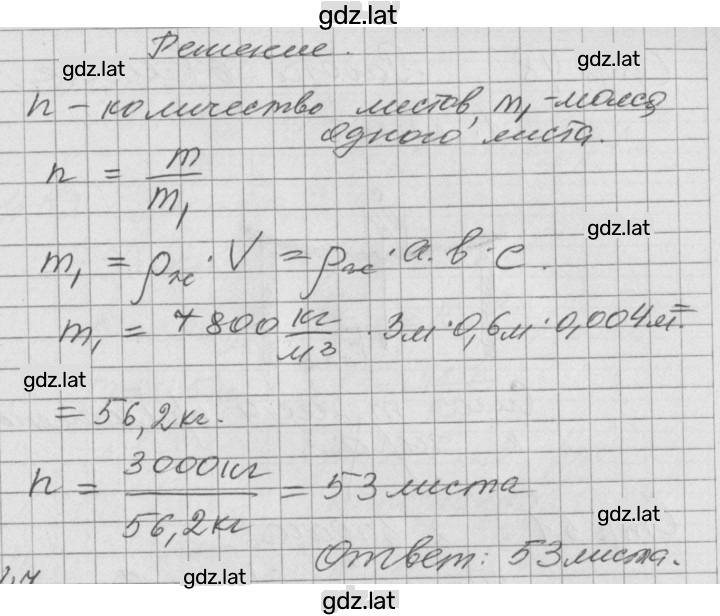 gdz.lat
Решение.
gdz.lat
gdz.lat
n - количество листов, m₁ - масса
одного листа.
n = m/m₁
gdz.lat
m₁ = ρж · V = ρж · a · b · c.
m₁ = 7800 кг/м³ · 3м · 0,6м · 0,004м =
gdz.lat
= 56,2 кг.
n = 3000кг/56,2кг = 53 листа
gdz.lat
Ответ: 53 листа.
gdz.lat
gdz.lat